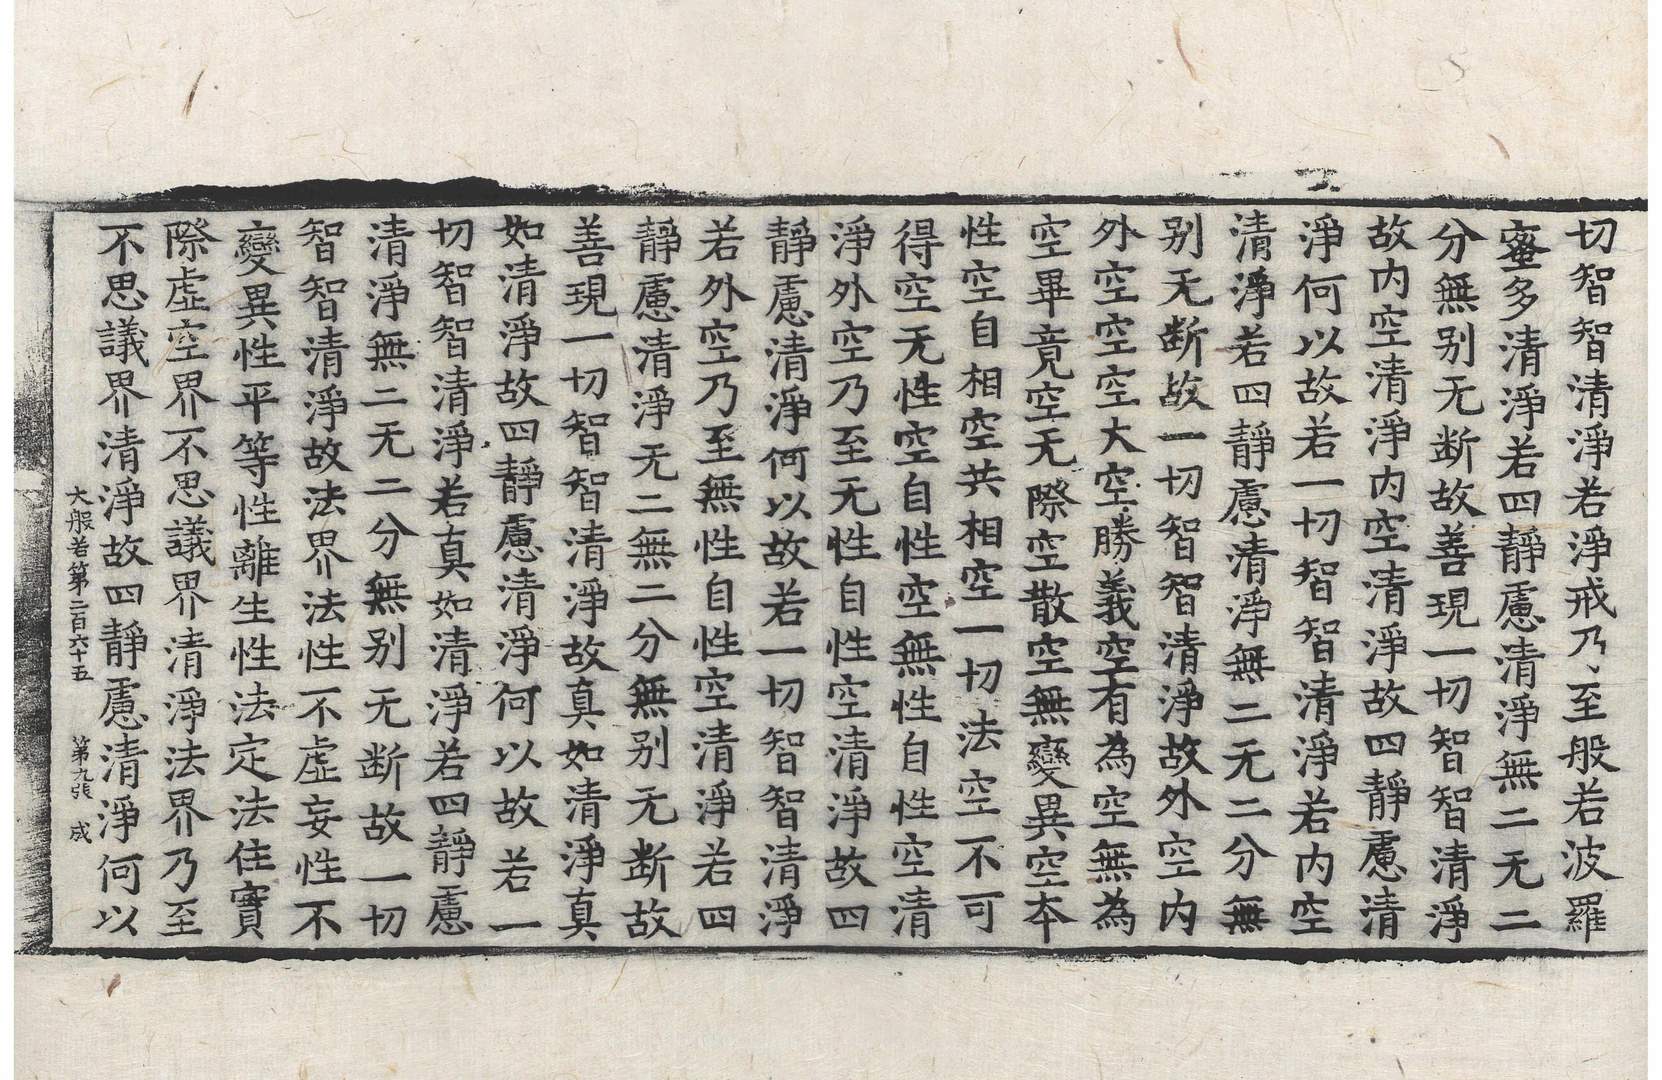 切智智清淨若淨戒乃至般若波羅
蜜多清淨若四靜慮清淨無二无二
分無别无断故善現一切智智清淨
故内空清淨内空清淨故四靜慮清
淨何以故若一切智智清淨若内空
清淨若四靜慮清淨無二无二分無
别无断故一切智智清淨故外空内
外空空空大空勝義空有為空無為
空畢竟空无際空散空無變異空本
性空自相空共相空一切法空不可
得空无性空自性空無性自性空清
淨外空乃至无性自性空清淨故四
靜慮清淨何以故若一切智智清淨
若外空乃至無性自性空清淨若四
靜慮清淨无二無二分無别无断故
善現一切智智清淨故真如清淨真
如清淨故四靜慮清淨何以故若一
切智智清淨若真如清淨若四靜慮
清淨無二无二分無别无断故一切
智智清淨故法界法性不虛妄性不
變異性平等性離生性法定法住實
際虛空界不思議界清淨法界乃至
不思議界清淨故四靜慮清淨何以
大般若第二百六十五 第九張 成